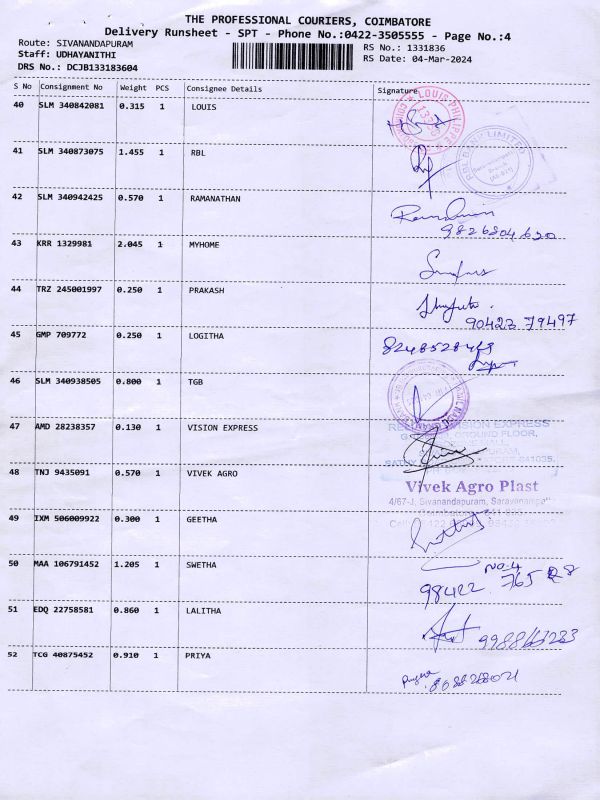 THE PROFESSIONAL COURIERS, COIMBATORE
Delivery Runsheet - SPT - Phone No.:0422-3505555 - Page No.:4
Route: SIVANANDAPURAM
Staff: UDHAYANITHI
DRS No.: DCJB133183604
RS No.: 1331836
RS Date: 04-Mar-2024
S No Consignment No Weight PCS Consignee Details Signature
40 SLM 340842081 0.315 1 LOUIS
LOUIS PHILIPPE
41 SLM 340873075 1.455 1 RBL
RBL BANK LIMITED
42 SLM 340942425 0.570 1 RAMANATHAN
9826804620
43 KRR 1329981 2.045 1 MYHOME
44 TRZ 245001997 0.250 1 PRAKASH
90423 79497
45 GMP 709772 0.250 1 LOGITHA
46 SLM 340938505 0.800 1 TGB
47 AMD 28238357 0.130 1 VISION EXPRESS
VISION EXPRESS
GROUND FLOOR,
641035.
48 TNJ 9435091 0.570 1 VIVEK AGRO
Vivek Agro Plast
4/67-J, Sivanandapuram, Saravanampatti
49 IXM 506009922 0.300 1 GEETHA
50 MAA 106791452 1.205 1 SWETHA
NO-4
98422 765
51 EDQ 22758581 0.860 1 LALITHA
52 TCG 40875452 0.910 1 PRIYA